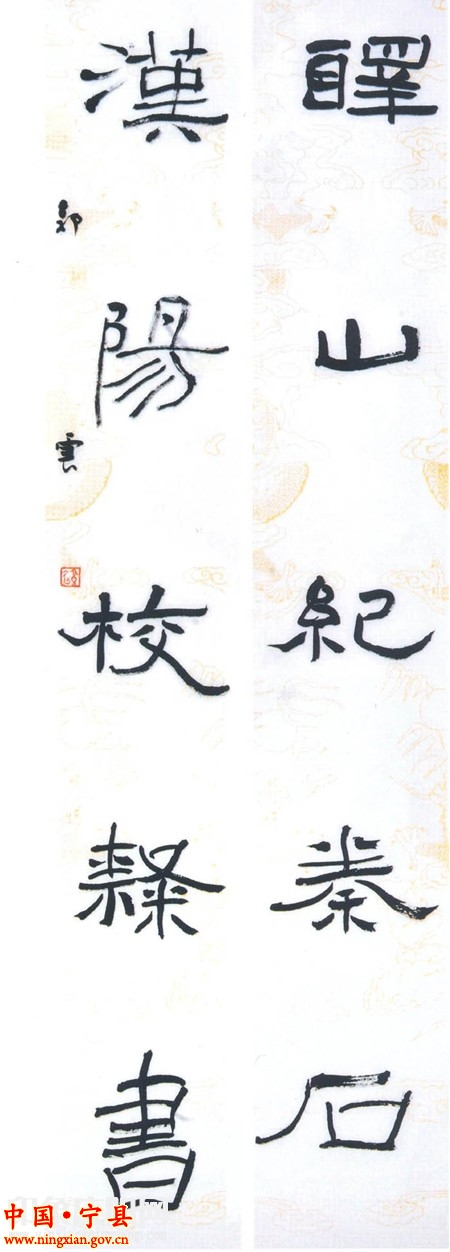 山紀秦石
漢陽校隸書
雲
中国·宁县
www.ningxian.gov.cn